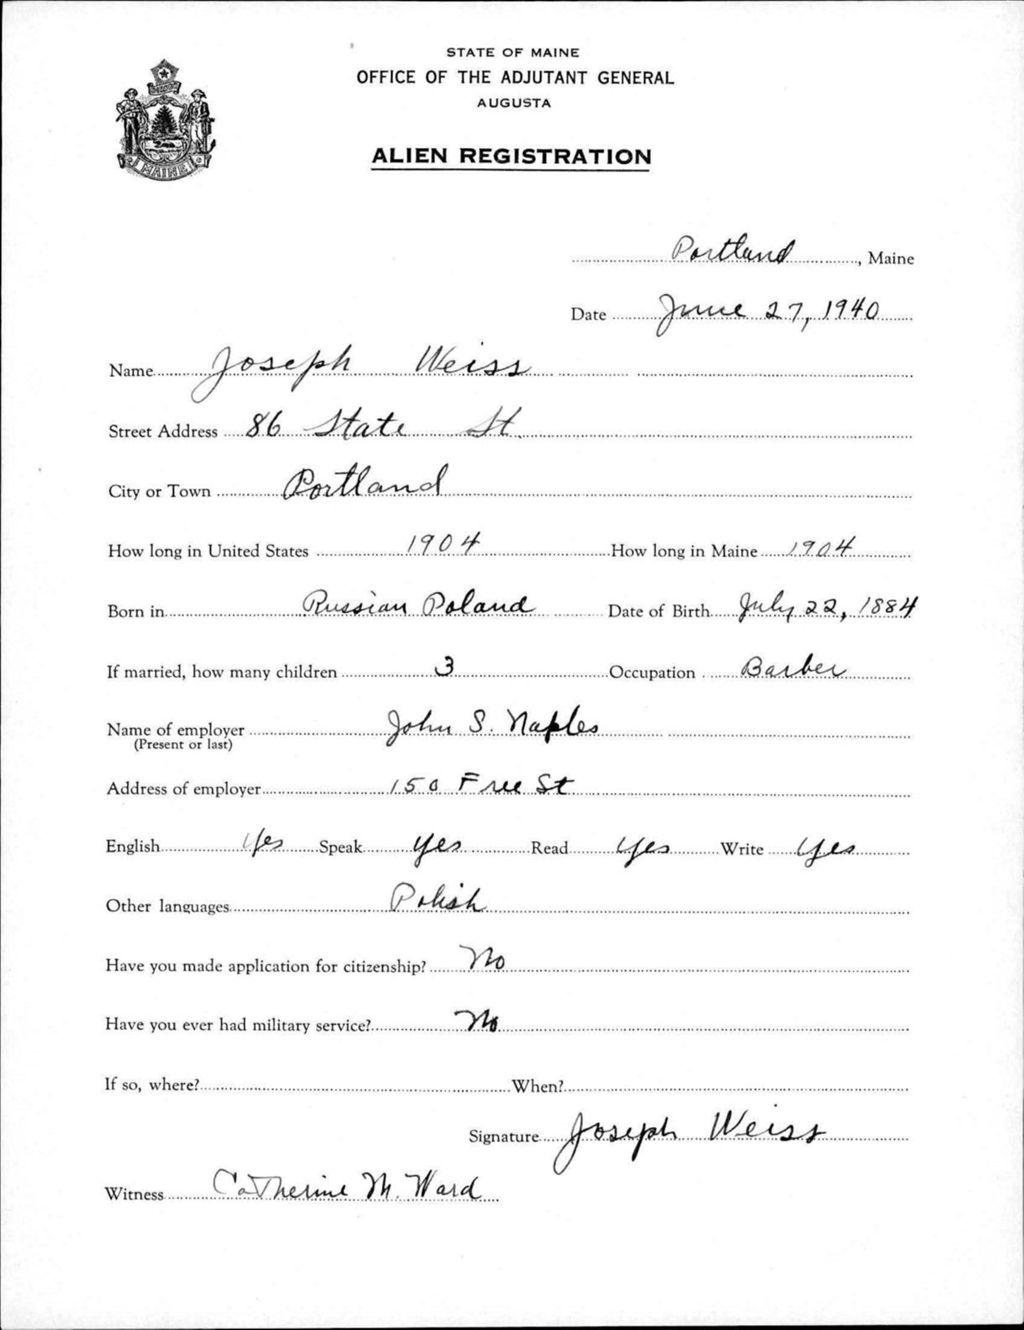 STATE OF MAINE
OFFICE OF THE ADJUTANT GENERAL
AUGUSTA
ALIEN REGISTRATION
MAINE
Portland, Maine
Date June 27, 1940
Name Joseph Weiss
Street Address 86 State St.
City or Town Portland
How long in United States 1904 How long in Maine 1904
Born in Russian Poland Date of Birth July 22, 1884
If married, how many children 3 Occupation Barber
Name of employer John S. Naples
(Present or last)
Address of employer 150 Free St
English Yes Speak Yes Read Yes Write Yes
Other languages Polish
Have you made application for citizenship? No
Have you ever had military service? No
If so, where? When?
Signature Joseph Weiss
Witness Catherine M. Ward